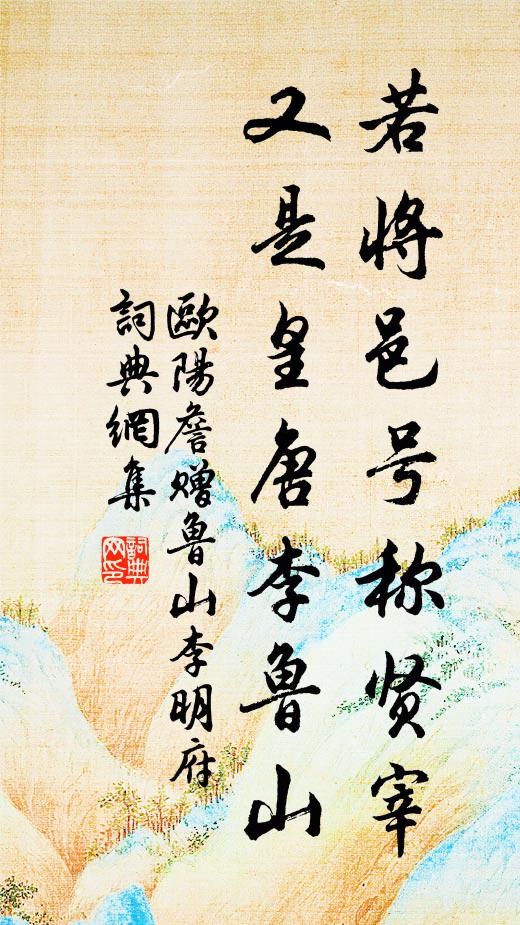 若将邑号称贤宰
又是皇唐李鲁山
歐陽詹赠鲁山李明府
詞典網集
詞典网印